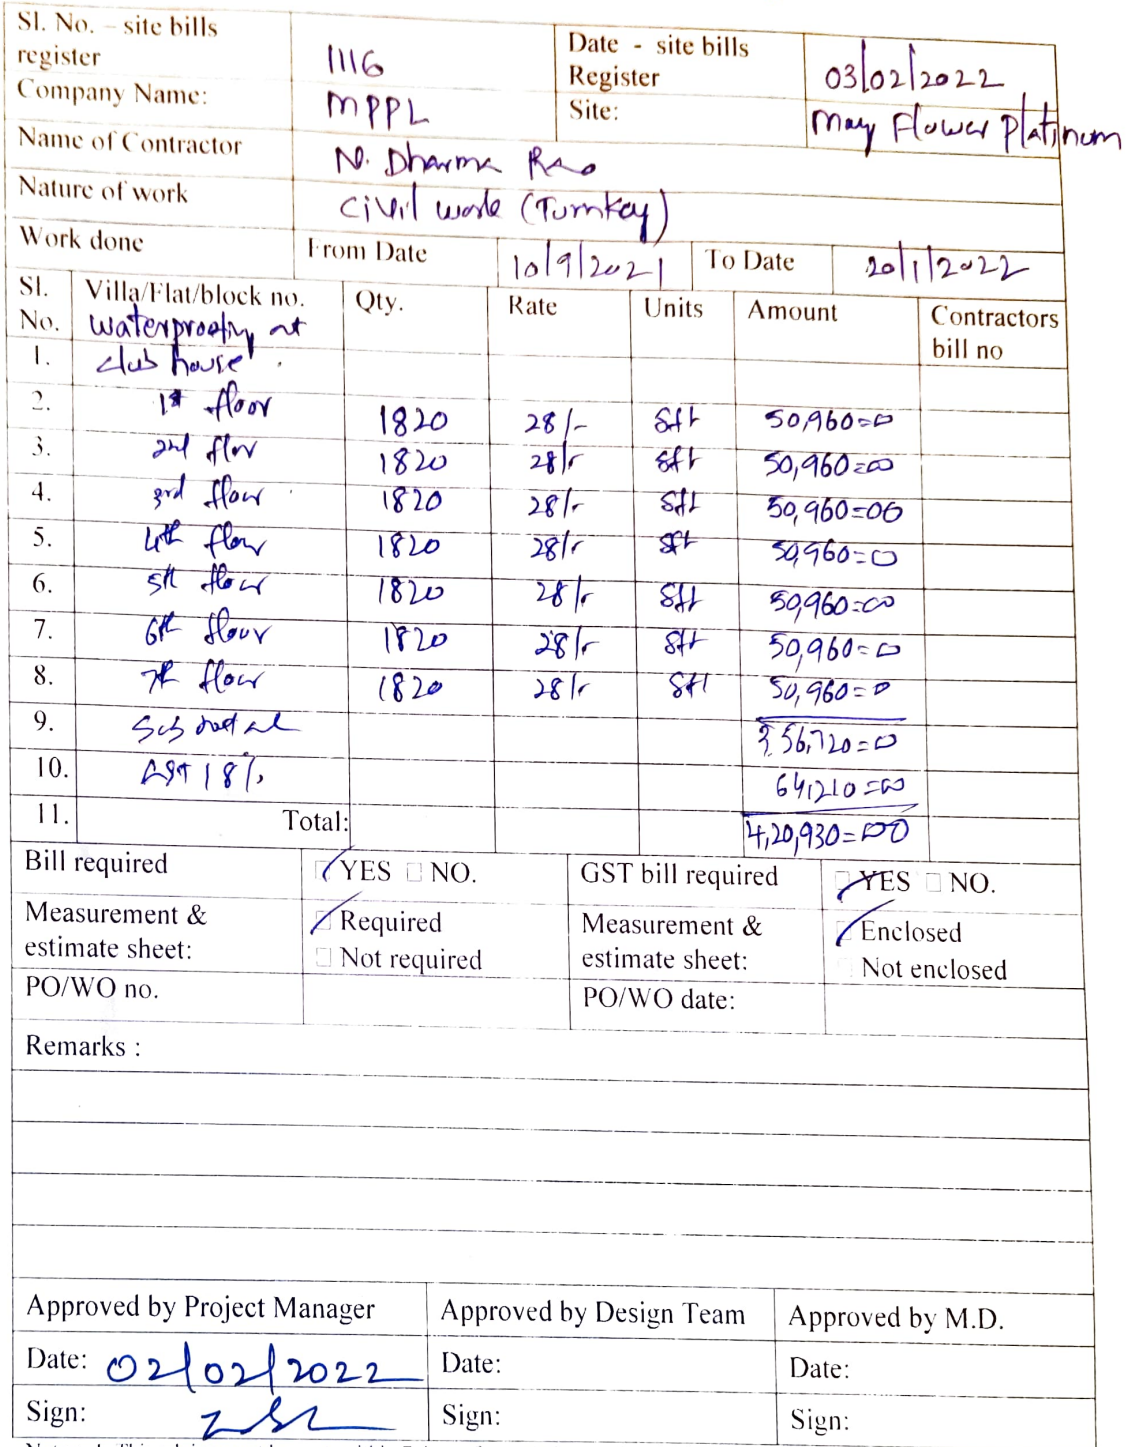 Sl. No. – site bills register 1116 Date - site bills Register 03/02/2022
Company Name: MPPL Site: May Flower Platinum
Name of Contractor N. Dharma Rao
Nature of work Civil work (Turnkey)
Work done From Date 10/9/2021 To Date 20/1/2022
Sl. No. Villa/Flat/block no. Qty. Rate Units Amount Contractors bill no
waterproofing at
1. club house
2. 1st floor 1820 28/- sft 50,960=00
3. 2nd flor 1820 28/- sft 50,960=00
4. 3rd floor 1820 28/- sft 50,960=00
5. 4th floor 1820 28/- sft 50,960=00
6. 5th floor 1820 28/- sft 50,960=00
7. 6th floor 1820 28/- sft 50,960=00
8. 7th floor 1820 28/- sft 50,960=00
9. Sub total 3,56,720=00
10. GST 18% 64,210=00
11. Total: 4,20,930=00
Bill required YES NO. GST bill required YES NO.
Measurement & estimate sheet: Required Not required Measurement & estimate sheet: Enclosed Not enclosed
PO/WO no. PO/WO date:
Remarks :
Approved by Project Manager Approved by Design Team Approved by M.D.
Date: 02/02/2022 Date: Date:
Sign: Sign: Sign: